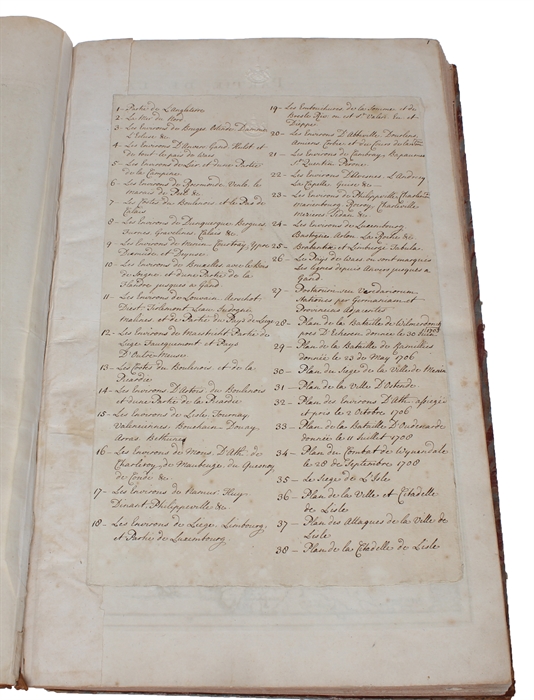 1
1- Partie de L'angleterre
2- La Mer du Nord
3- Les Environs de Bruges Ostende Damme
L'Ecluse &c
4- Les Environs D'Anvers Gand Hulst et
du tout le pais de Waes
5- Les Environs de Lier et d'une Partie
de la Campine
6- Les Environs de Roermonde Venlo le
marais de Peel &c
7- Les Costes du Boulenois et le Pas de
Calais
8- Les Environs de Dunquerque Bergues
Furnes, Gravelines Calais &c
9- Les Environs de Menin Courtray Ypres
Dixmude et Deynse
10- Les Environs de Bruxelles avec le Bois
de Soigne et d'une Partie de la
Flandre jusques a Gand
11- Les Environs de Louvain Aerschot
Diest Tirlemont Leau Judogne
Malines et de Partie du Pays de Liege
12- Les Environs de Mastricht Partie de
Liege Fauquemont et Pays
D'Outre-Meuse
13- Les Costes du Boulenois et de la
Picardie
14- Les Environs D'Artois du Boulenois
et d'une Partie de la Picardie
15- Les Environs de Lisle Tournay
Valenciennes Bouchain Douay
Arras Bethune
16- Les Environs de Mons D'Ath de
Charleroy de Maubeuge du Quesnoy
de Condé &c
17- Les Environs de Namur Huy
Dinant Philippeville &c
18- Les Environs de Liege Limbourg
et Partie de Luxembourg
19- Les Embouchures de la Somme et du
Bresle Riv. ou est St Valeri Eu et
Dieppe
20- Les Environs D'Abbeville Dourlens
Amiens Corbie et du Cours de la
21- Les Environs de Cambray Bapaume
St Quentin Perone
22- Les Environs D'Avesnes Landrecy
La Capelle Guise &c
23- Les Environs de Philippeville
Marienbourg Rocroy Charleville
Mezieres Sedan &c
24- Les Environs de Luxembourg
Bastogne Arlon La Roche &c
25- Brabantiæ et Limburgi Tabula
26- Le Pays de Waes ou sont marquées
Les lignes depuis Anvers jusques a
Gand
27- Postarum seu Veredariorum
Stationes per Germaniam et
Provincias Adjacentes
28- Plan de la Bataille de
pres D'Eckeren donnée le 30
29- Plan de la Bataille de Ramillies
donnée le 23 de May 1706
30- Plan du Siege de la Ville de Menin
31- Plan de la Ville D'Ostende
32- Plan des Environs D'Ath assiegé
et pris le 2 Octobre 1706
33- Plan de la Bataille D'Oudenarde
donnée le 11 Juillet 1708
34- Plan du Combat de Wynendale
le 28 de Septembre 1708
35- Le Siege de L'Isle
36- Plan de la Ville et Citadelle
de Lisle
37- Plan des Attaques de la Ville de
Lisle
38- Plan de la Citadelle de Lisle